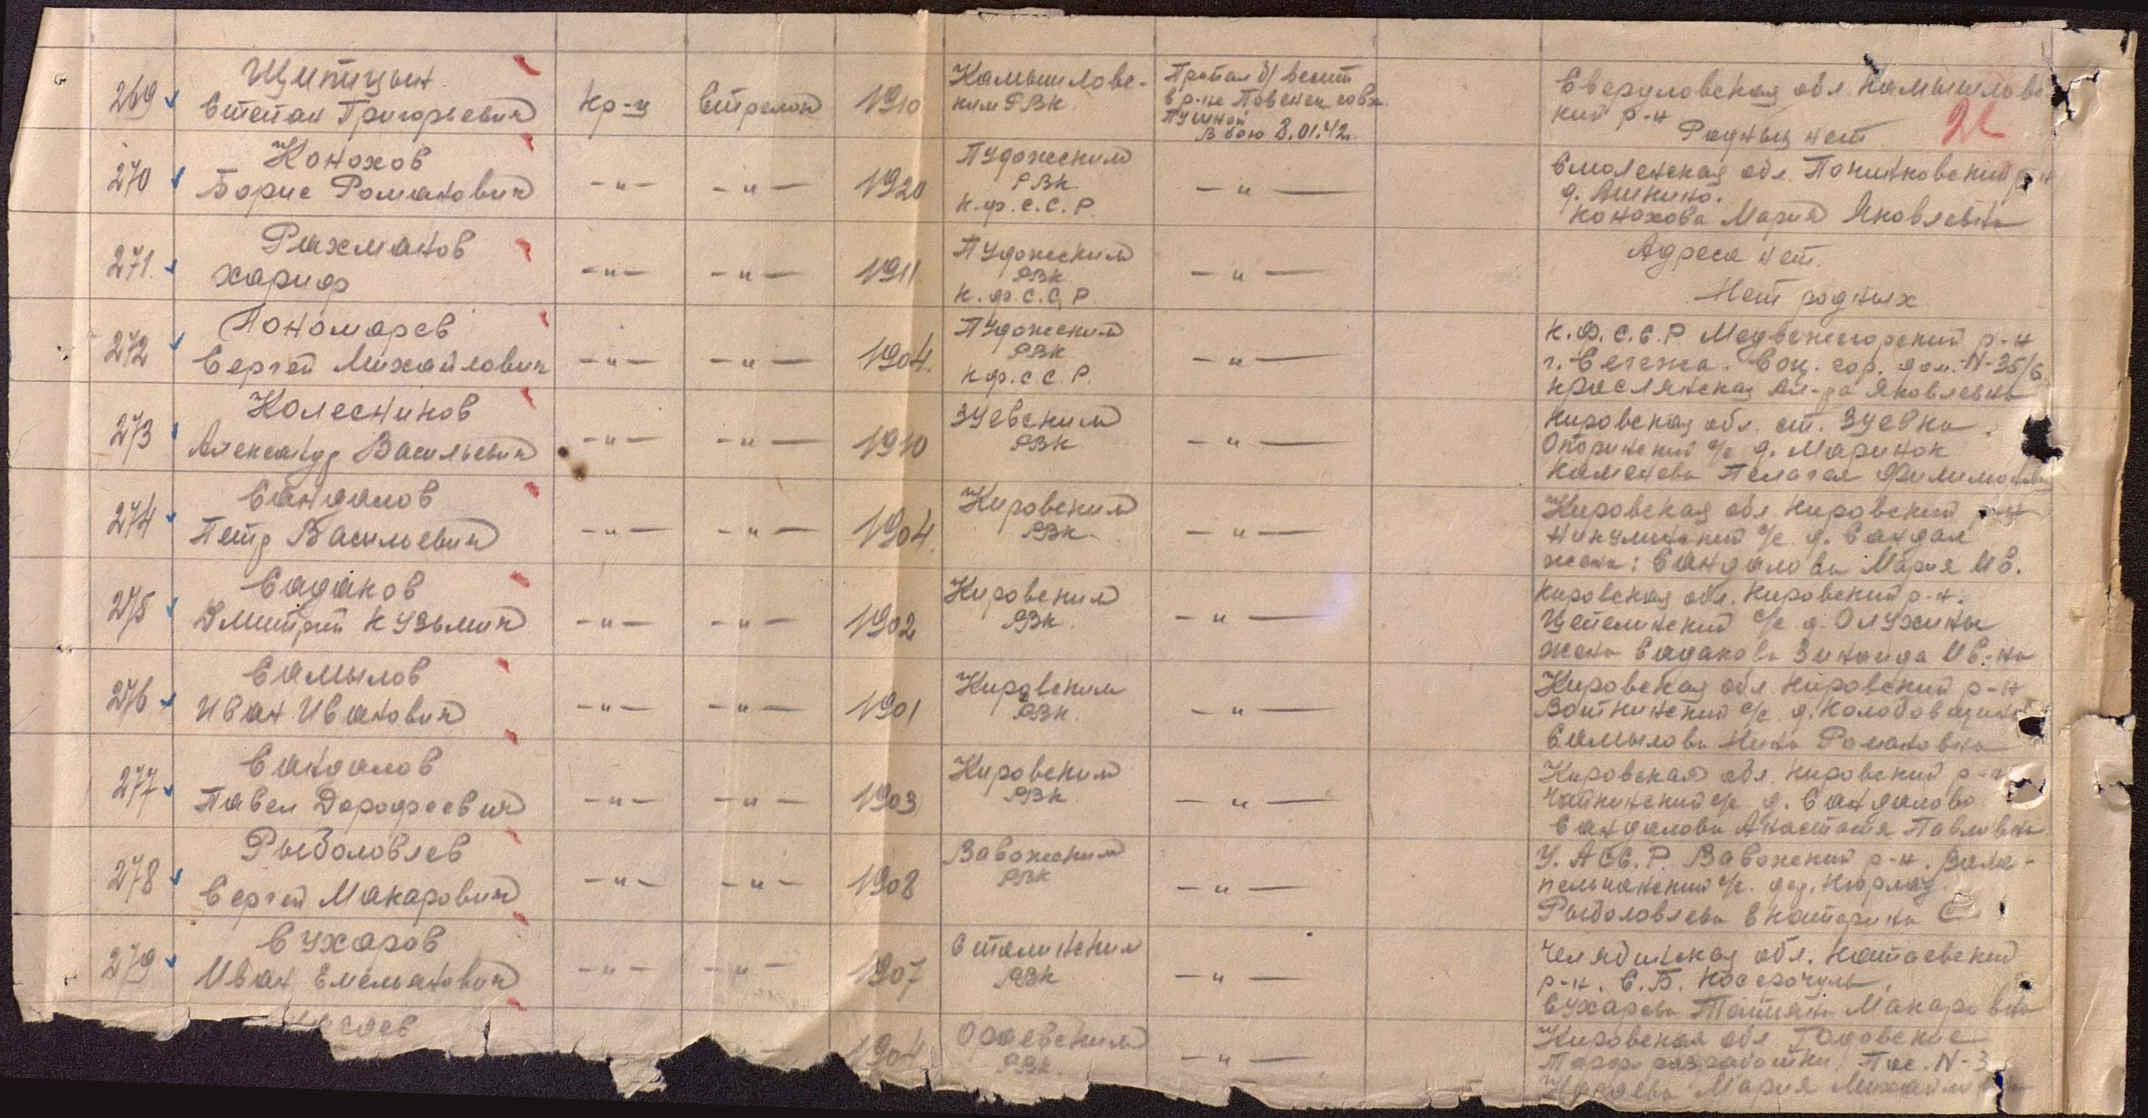 22
269 Щипицын
Степан Григорьевич кр-ц Стрелок 1910 Камышловс-
ким РВК. Пропал б/вести
в р-не Повенец совх.
Пушной
В бою 8.01.42. Свердловская обл. Камышловс
кий р-н
Родных нет
270 Конохов
Борис Романович -"- -"- 1920 Пудожским
РВК.
К.ф.С.С.Р. -"- Смоленская обл. р-н
д.
Конохова Мария Яковлевна
271. Рахманов
Хариф -"- -"- 1911 Пудожским
РВК
К.ф.С.С.Р -"- Адреса нет.
Нет родных
272 Пономарев
Сергей Михайлович -"- -"- 1904. Пудожским
РВК
К.ф.С.С.Р. -"- К.Ф.С.С.Р Медвежегорский р-н
г. Сегежа. Соц. гор. дом. N-35/6
Ал-ра Яковлевна
273 Колесников
Александр Васильевич -"- -"- 1910 Зуевским
РВК -"- Кировская обл. ст. Зуевка.
с/с д. Маринок
Пелагея Филимоновна
274 Сандалов
Петр Васильевич -"- -"- 1904. Кировским
РВК. -"- Кировская обл. Кировский р-н
Никулинский с/с д. Сандал
жена: Сандалова Мария Ив.
275 Садаков
Дмитрий Кузьмич -"- -"- 1902 Кировским
РВК. -"- Кировская обл. Кировский р-н.
с/с д.
жена Садакова Зинаида Ив.-на
276 Самылов
Иван Иванович -"- -"- 1901 Кировским
РВК. -"- Кировская обл. Кировский р-н
с/с д.
Самылова Нина Романовна
277 Сандалов
Павел Дорофеевич -"- -"- 1903 Кировским
РВК. -"- Кировская обл. Кировский р-н
с/с д. Сандалово
Сандалова Анастасия Павловна
278 Рыболовлев
Сергей Макарович -"- -"- 1908 Вавожским
РВК -"- У.АСС.Р. Вавожский р-н. Вала-
с/с. дер.
Рыболовлева Екатерина С
279 Сухаров
Иван Емельянович -"- -"- 1907 Сталинским
РВК -"- Челябинская обл. Катаевский
р-н. С.Б.
Сухарева Татьяна Макаровна
1904 РВК -"- Кировская обл.
Торфоразработки Пос. N-3
Мария Михайловна